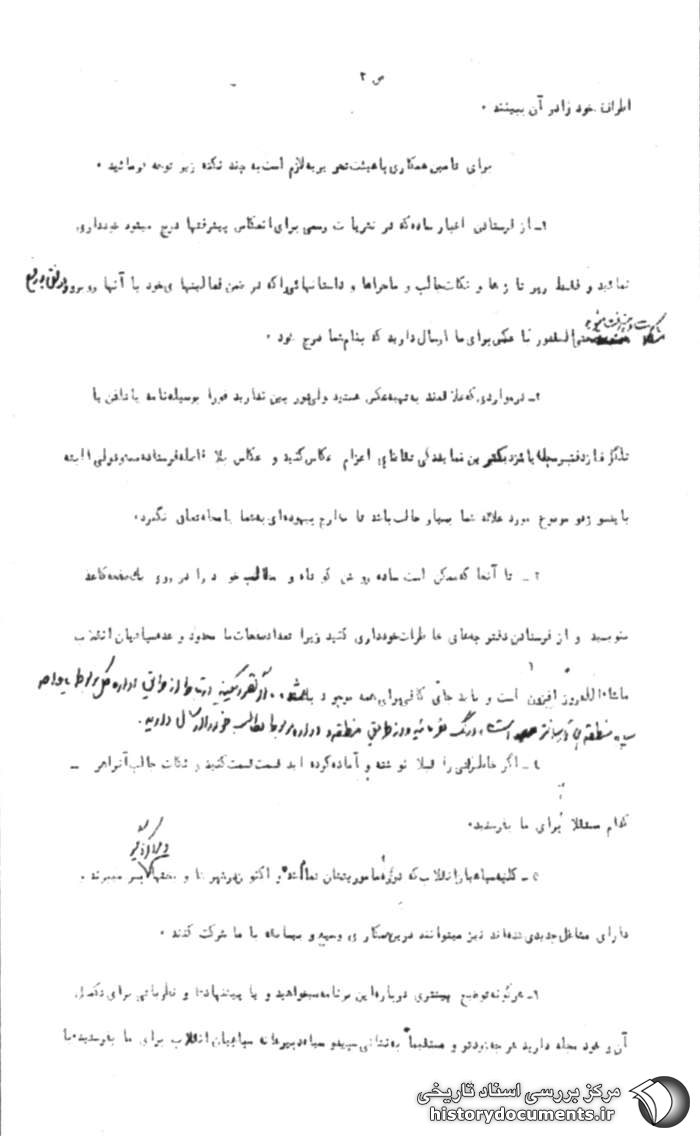 ص ۲
اطراف خود را در آن ببینند .
برای تامین همکاری با هیئت تحریریه لازم است به چند نکته زیر توجه فرمائید .
۱ـ از فرستادن اخبار ساده که در نشریات رسمی برای انعکاس پیشرفتها درج میشود خودداری
نمائید و فقط رپرتاژها و نکات جالب و ماجراها و داستانهائی را که در ضمن فعالیتهای خود با آنها روبرو
حتی المقدور با عکس برای ما ارسال دارید که بنام شما درج شود .
۲ـ در مواردی که علاقمند به تهیه عکس هستید ولی دوربین ندارید فورا بوسیله نامه یا تلفن یا
تلگراف از دفتر مجله یا نزدیکترین نمایندگی تقاضای اعزام عکاس کنید و عکاس بلافاصله فرستاده میشود ولی البته
باید سوژه و موضوع مورد علاقه شما بسیار جالب باشد تا مخارج بیهوده‌ای به شما یا مجله تعلق نگیرد.
۳ ـ تا آنجا که ممکن است ساده روشن کوتاه و مطالب خود را در روی یک صفحه کاغذ
بنویسید و از فرستادن دفترچه‌های خاطرات خودداری کنید زیرا تعداد صفحات ما محدود و عده سپاهیان انقلاب
ماشاءالله روز افزون است و باید جای کافی برای همه موجود باشد .
سپاه منطقه
منطقه و اداره مربوط مطالب خود را ارسال دارید .
٤ ـ اگر خاطراتی را قبلا نوشته و آماده کرده‌اید قسمت قسمت کنید و نکات جالب آنرا هر ـ
کدام مستقلا برای ما بفرستید.
۵ ـ کلیه سپاهیان انقلاب که دوره ماموریتشان تمام شده و اکنون در شهرها و بسر میبرند .
دارای مشاغل جدیدی شده‌اند نیز میتوانند در این همکاری وسیع و صمیمانه با ما شرکت کنند .
۶ـ هرگونه توضیح بیشتری درباره این برنامه میخواهید و یا پیشنهادها و نظریاتی برای تکمیل
آن و خود مجله دارید هر چه زودتر و مستقیماً به نشانی سپاهیان انقلاب برای ما بفرستید ما
مرکز بررسی اسناد تاریخی
historydocuments.ir